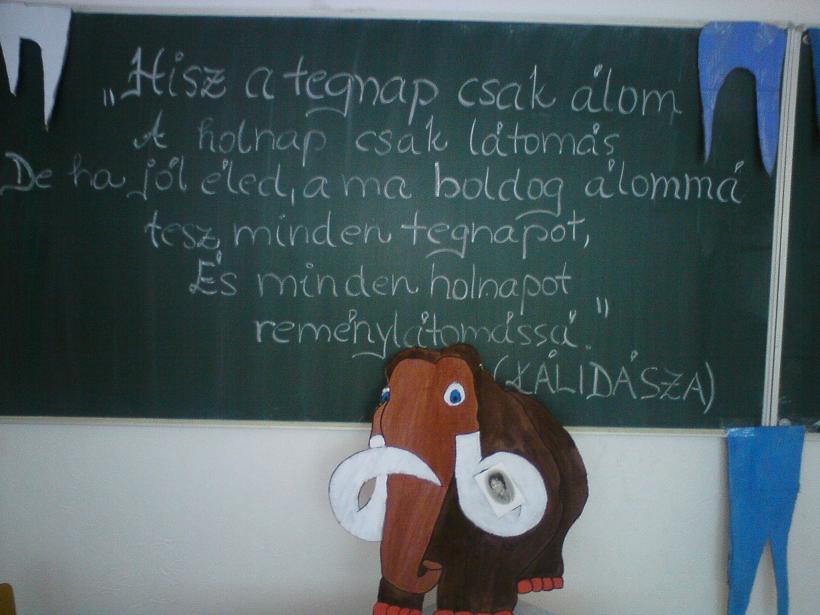 „Hisz a tegnap csak álom
A holnap csak látomás
De ha jól éled, a ma boldog álommá
tesz minden tegnapot,
És minden holnapot
reménylátomássá.”
(KÁLIDÁSZA)